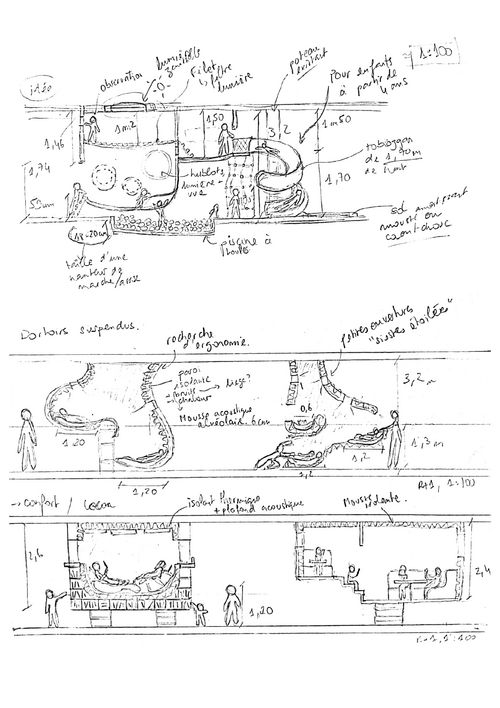 1:100
idéo
observation
luminosité
zénithale
Filet
filtre
lumière
poteau
existant
Pour enfants
à partir de
4 ans
1m2
1,50
3,2
1m50
1,46
1,74
55cm
hublots
lumière-
vue
toboggan
de 1,70m
de haut
1,70
18-20cm
taille d'une
hauteur de
marche/assise
piscine à
boules
sol amortissant
mousse ou
caoutchouc
Dortoirs suspendus.
recherche
d'ergonomie.
petites ouvertures
"siestes étoilées"
paroi
isolante
liège?
Mousse acoustique
alvéolaire 6cm
0,6
3,2m
1,20
1,2
1,3m
1,20
1,2
R+1, 1:100
→ confort / cocon
isolant thermique
+ plafond acoustique
Mousse isolante.
2,6
2,4
1,20
R+1, 1:100